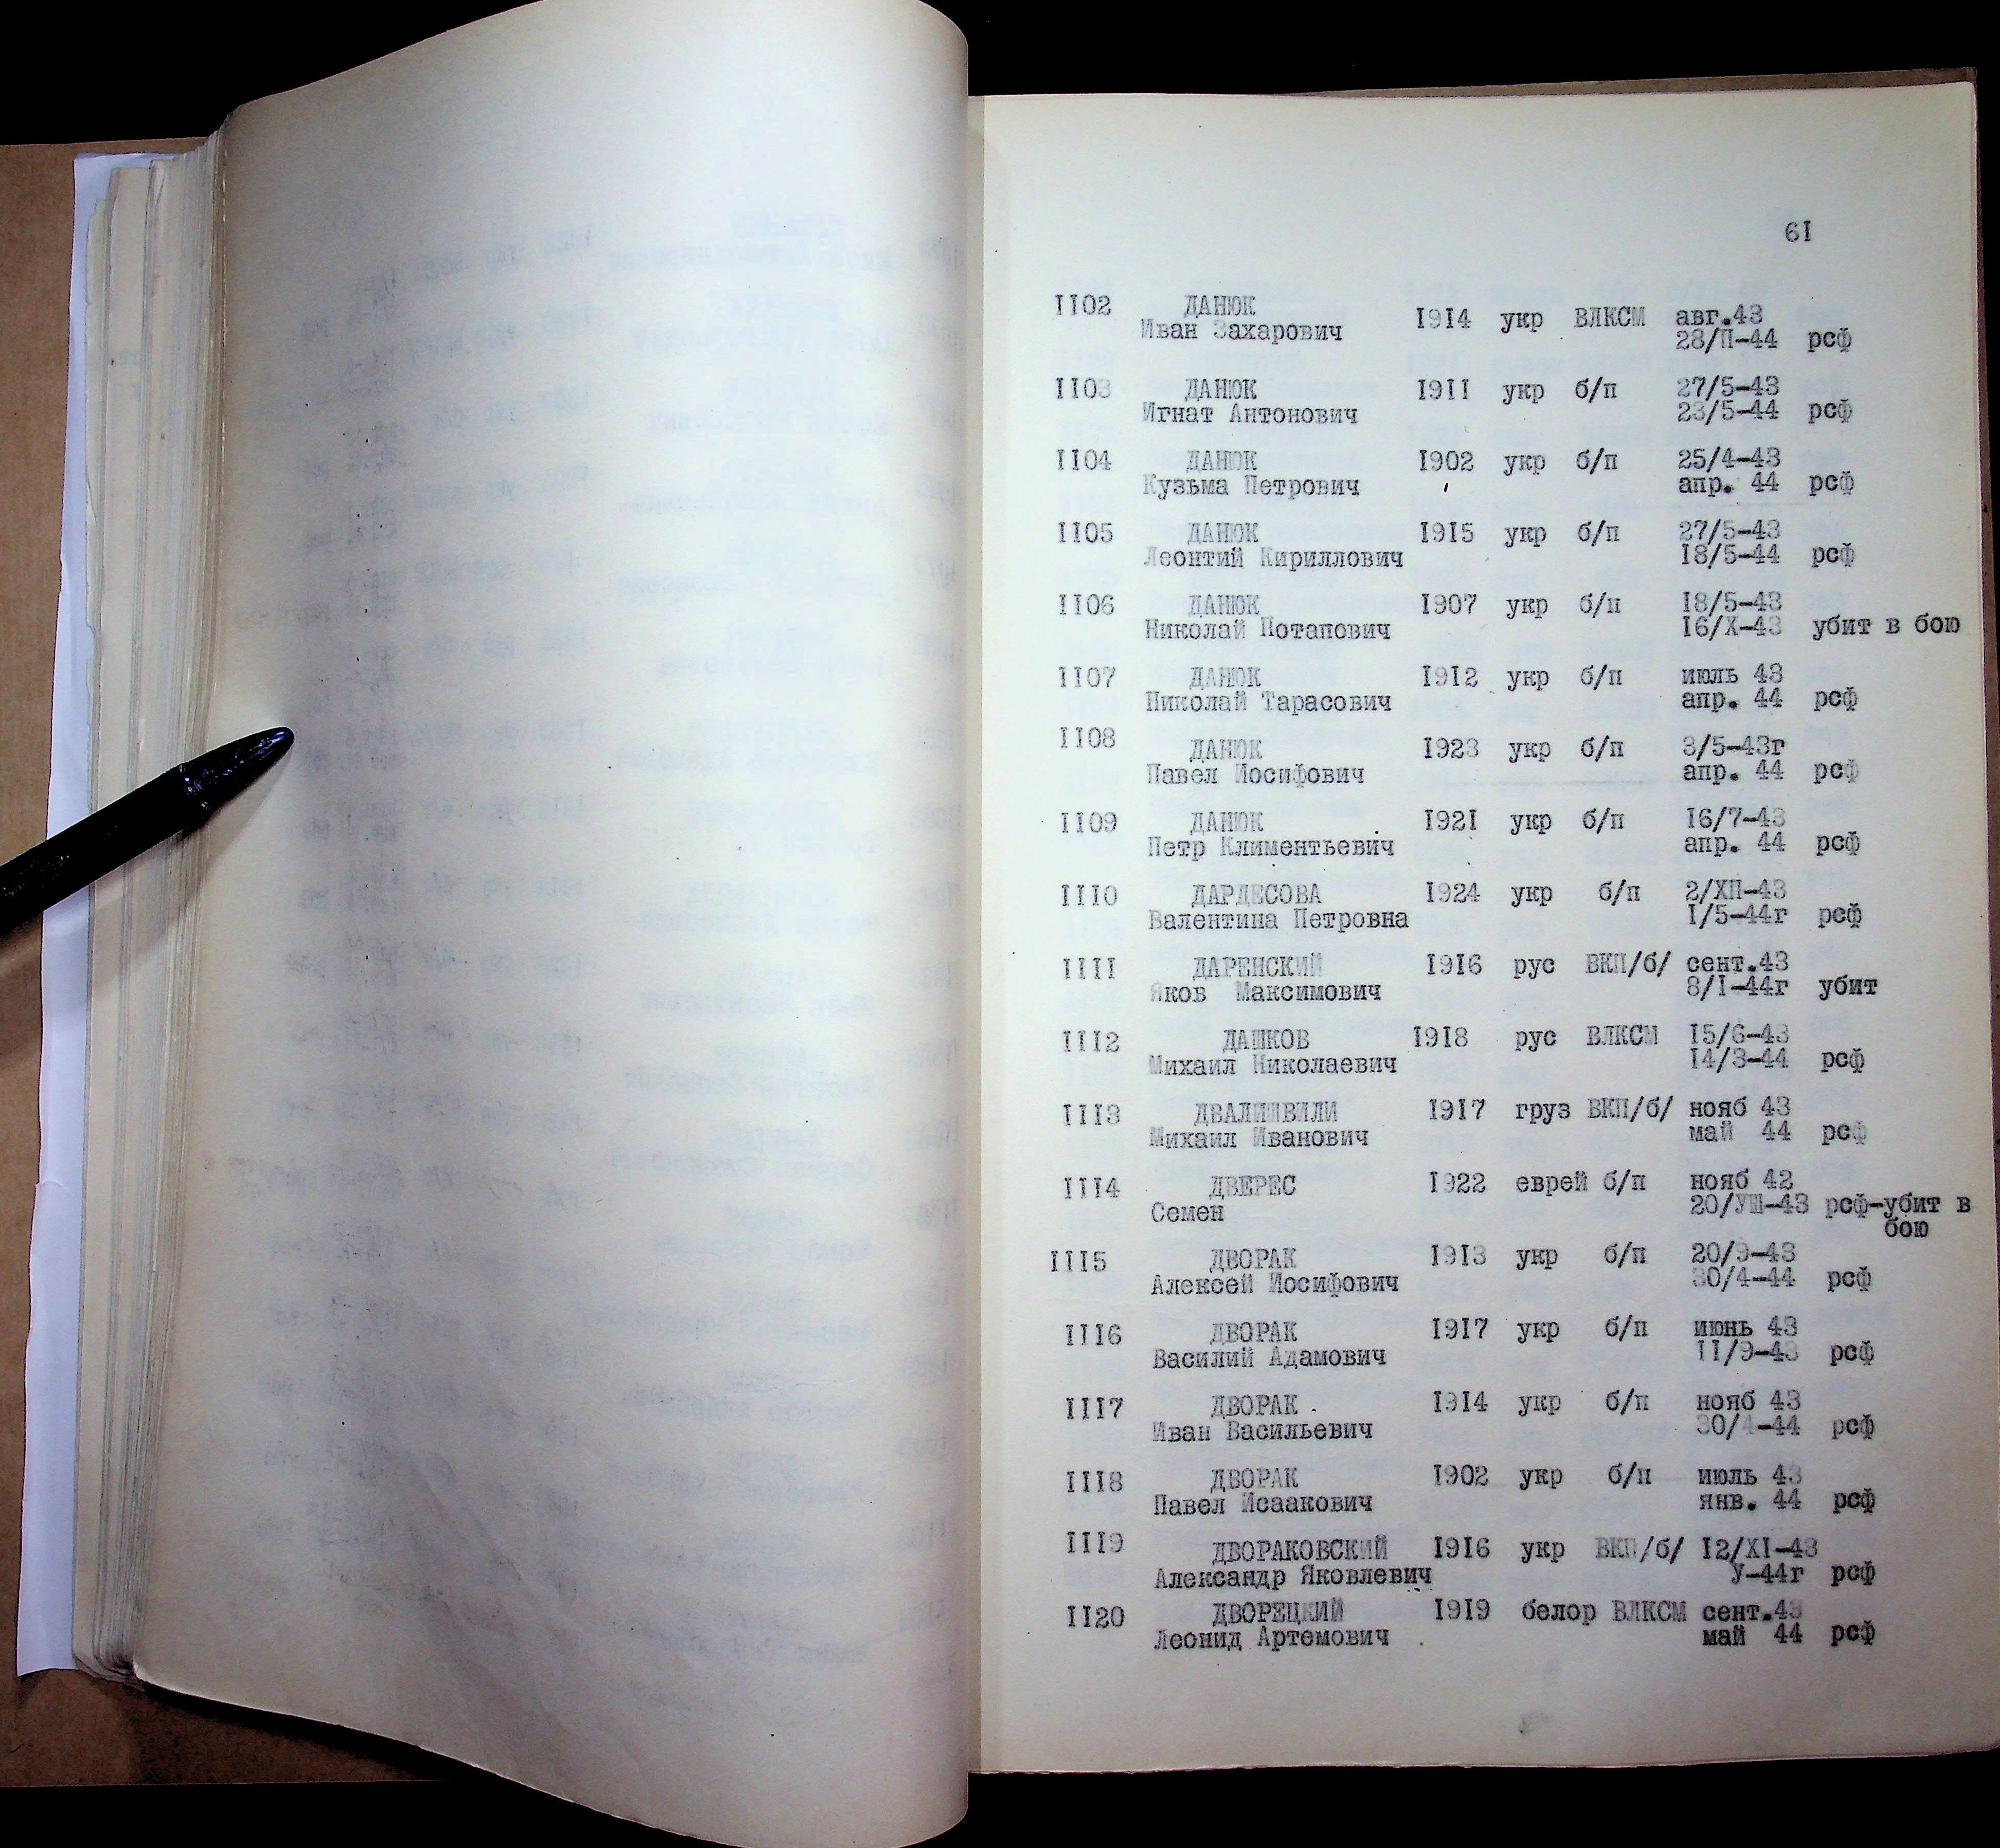 61
1102 ДАНЮК 1914 укр ВЛКСМ авг.43
Иван Захарович 28/П-44 рсф
1103 ДАНЮК 1911 укр б/п 27/5-43
Игнат Антонович 23/5-44 рсф
1104 ДАНЮК 1902 укр б/п 25/4-43
Кузьма Петрович апр. 44 рсф
1105 ДАНЮК 1915 укр б/п 27/5-43
Леонтий Кириллович 18/5-44 рсф
1106 ДАНЮК 1907 укр б/п 18/5-43
Николай Потапович 16/X-43 убит в бою
1107 ДАНЮК 1912 укр б/п июль 43
Николай Тарасович апр. 44 рсф
1108 ДАНЮК 1923 укр б/п 3/5-43г
Павел Иосифович апр. 44 рсф
1109 ДАНЮК 1921 укр б/п 16/7-43
Петр Климентьевич апр. 44 рсф
1110 ДАРДЕСОВА 1924 укр б/п 2/ХП-43
Валентина Петровна 1/5-44г рсф
1111 ДАРЕНСКИЙ 1916 рус ВКП/б/ сент.43
Яков Максимович 8/1-44г убит
1112 ДАШКОВ 1918 рус ВЛКСМ 15/6-43
Михаил Николаевич 14/3-44 рсф
1113 ДВАЛИШВИЛИ 1917 груз ВКП/б/ нояб 43
Михаил Иванович май 44 рсф
1114 ДВЕРЕС 1922 еврей б/п нояб 42
Семен 20/УШ-43 рсф-убит в
бою
1115 ДВОРАК 1913 укр б/п 20/9-43
Алексей Иосифович 30/4-44 рсф
1116 ДВОРАК 1917 укр б/п июнь 43
Василий Адамович 11/9-43 рсф
1117 ДВОРАК 1914 укр б/п нояб 43
Иван Васильевич 30/4-44 рсф
1118 ДВОРАК 1902 укр б/п июль 43
Павел Исаакович янв. 44 рсф
1119 ДВОРАКОВСКИЙ 1916 укр ВКП/б/ 12/XI-43
Александр Яковлевич У-44г рсф
1120 ДВОРЕЦКИЙ 1919 белор ВЛКСМ сент.43
Леонид Артемович май 44 рсф